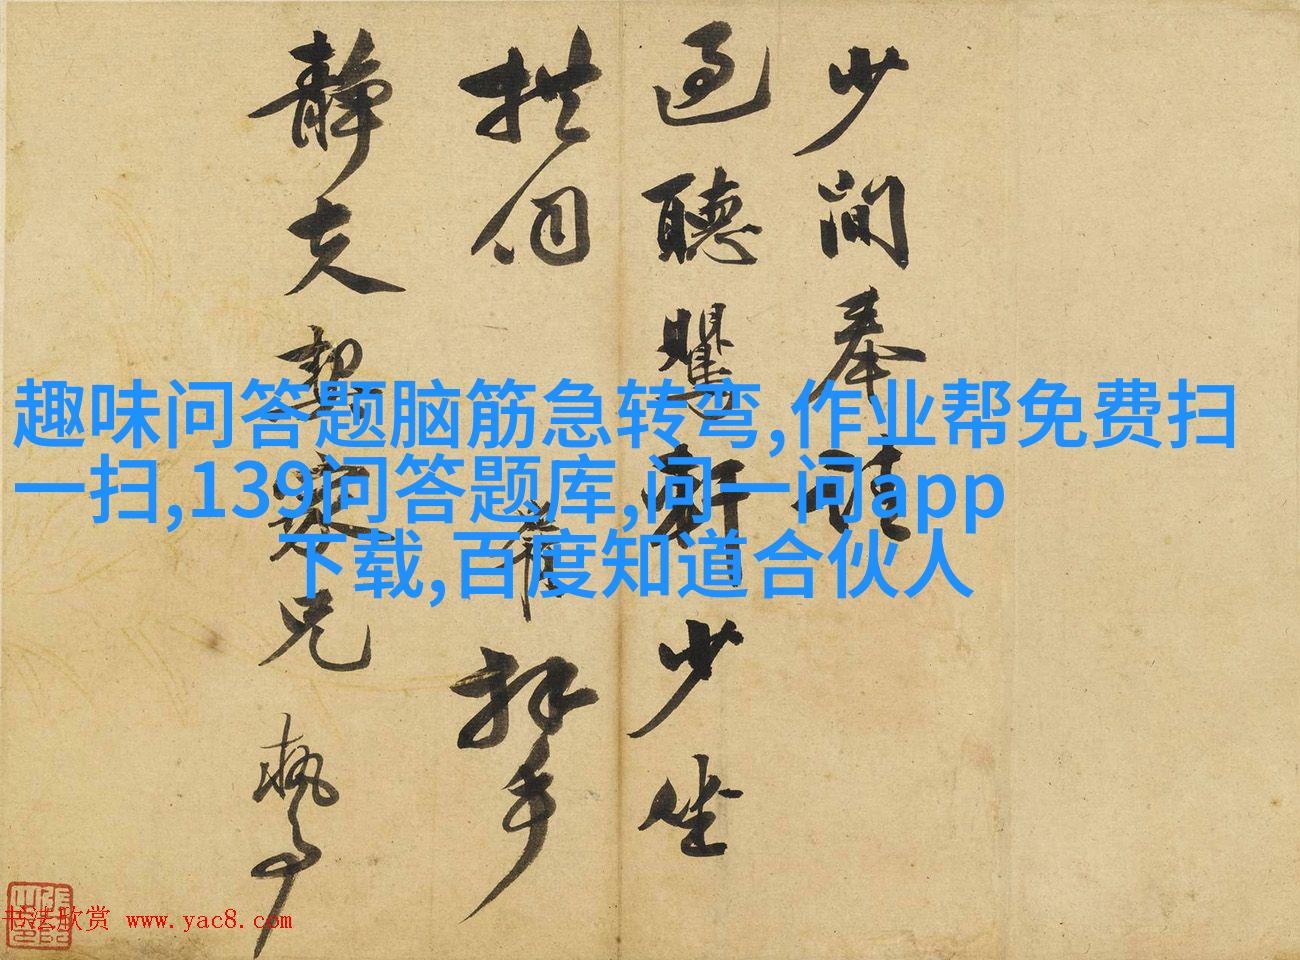 趣味问答题脑筋急转弯,作业帮免费扫
一扫,139问答题库,问一问app
下载,百度知道合伙人
少間奉
過聽軒少坐
拱伺 拜手
靜夫契家兄執事
书法欣赏 www.yac8.com